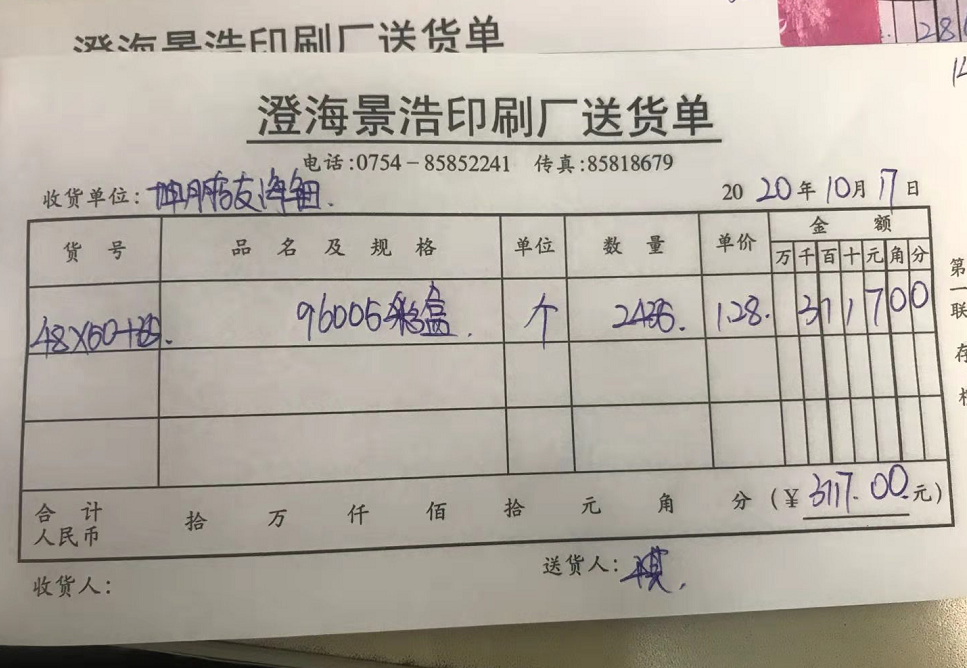 澄海景浩印刷厂送货单
28
澄海景浩印刷厂送货单
电话:0754-85852241 传真:85818679
收货单位: 2020年10月17日
货号 品名及规格 单位 数量 单价 金额
万千百十元角分
48X60+ 96005彩盒. 个 1.28. 311700
合计人民币 拾 万 仟 佰 拾 元 角 分 (¥3117.00元)
收货人: 送货人:
第一联 存